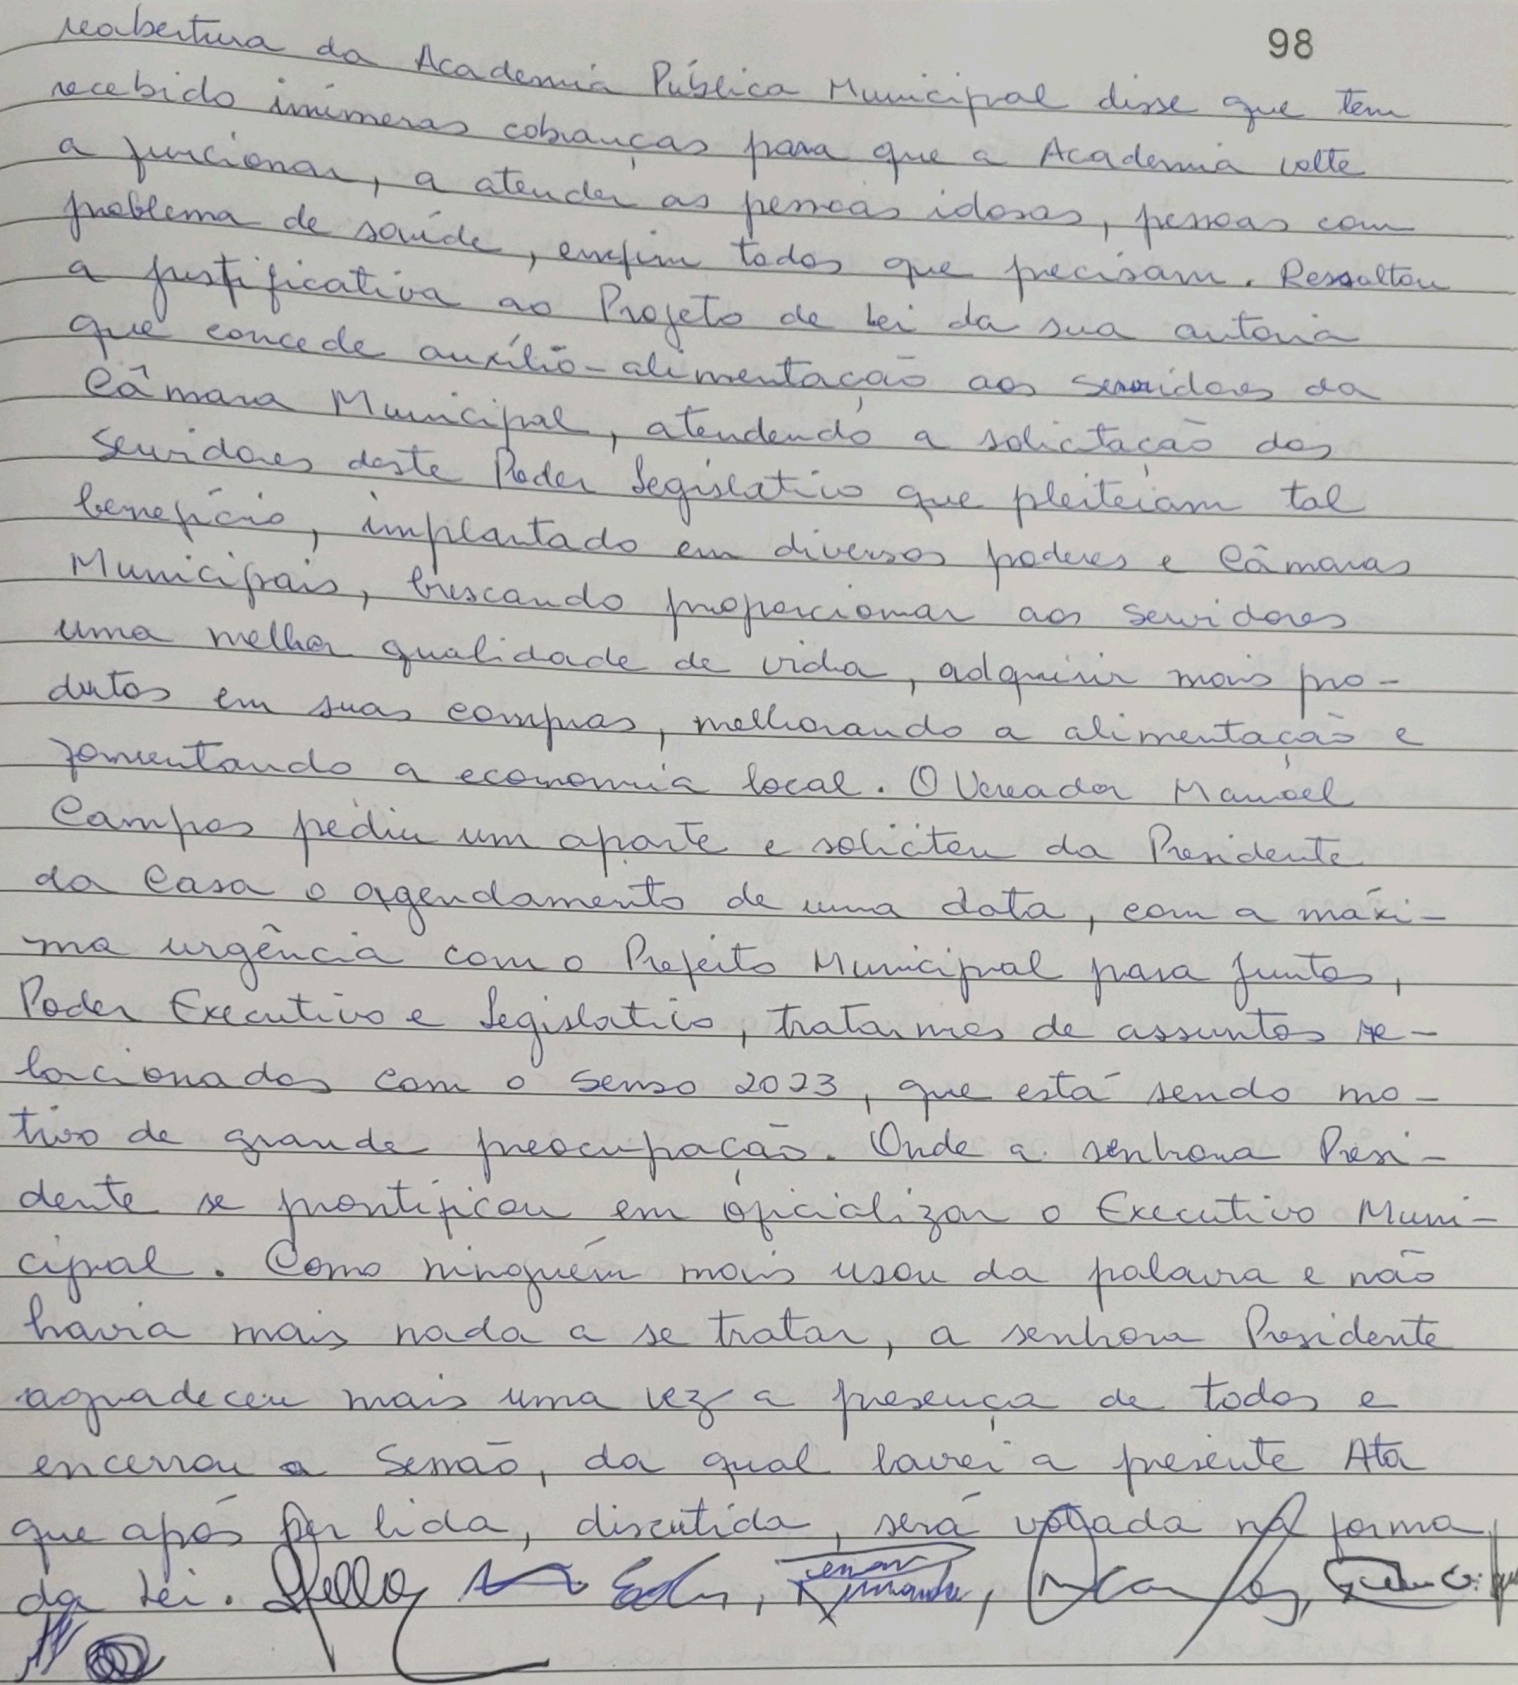 98
reabertura da Academia Pública Municipal disse que tem
recebido inúmeras cobranças para que a Academia volte
a funcionar, a atender as pessoas idosas, pessoas com
problema de saúde, enfim todos que precisam. Ressaltou
a justificativa ao Projeto de Lei da sua autoria
que concede auxílio-alimentação aos servidores da
Câmara Municipal, atendendo a solicitação dos
servidores deste Poder Legislativo que pleiteiam tal
benefício, implantado em diversos poderes e Câmaras
Municipais, buscando proporcionar aos servidores
uma melhor qualidade de vida, adquirir mais pro-
dutos em suas compras, melhorando a alimentação e
fomentando a economia local. O Vereador Manoel
Campos pediu um aparte e solicitou da Presidente
da Casa o agendamento de uma data, com a máxi-
ma urgência com o Prefeito Municipal para juntos,
Poder Executivo e Legislativo, tratarmos de assuntos re-
lacionados com o Senso 2023, que está sendo mo-
tivo de grande preocupação. Onde a senhora Presi-
dente se prontificou em oficializar o Executivo Muni-
cipal. Como ninguém mais usou da palavra e não
havia mais nada a se tratar, a senhora Presidente
agradeceu mais uma vez a presença de todos e
encerrou a Sessão, da qual lavrei a presente Ata
que após for lida, discutida, será votada na forma
da Lei.